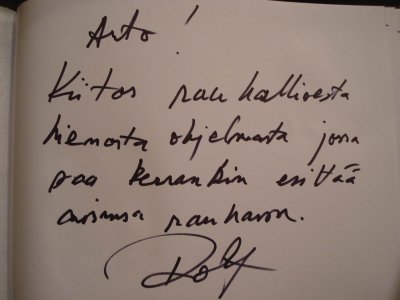 Arto!
Kiitos rauhallisesta
hienosta ohjelmasta jossa
saa kerrankin esittää
rauhassa.
Rolf